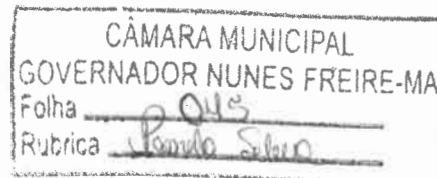 CÂMARA MUNICIPAL
GOVERNADOR NUNES FREIRE-MA
Folha 045
Rubrica